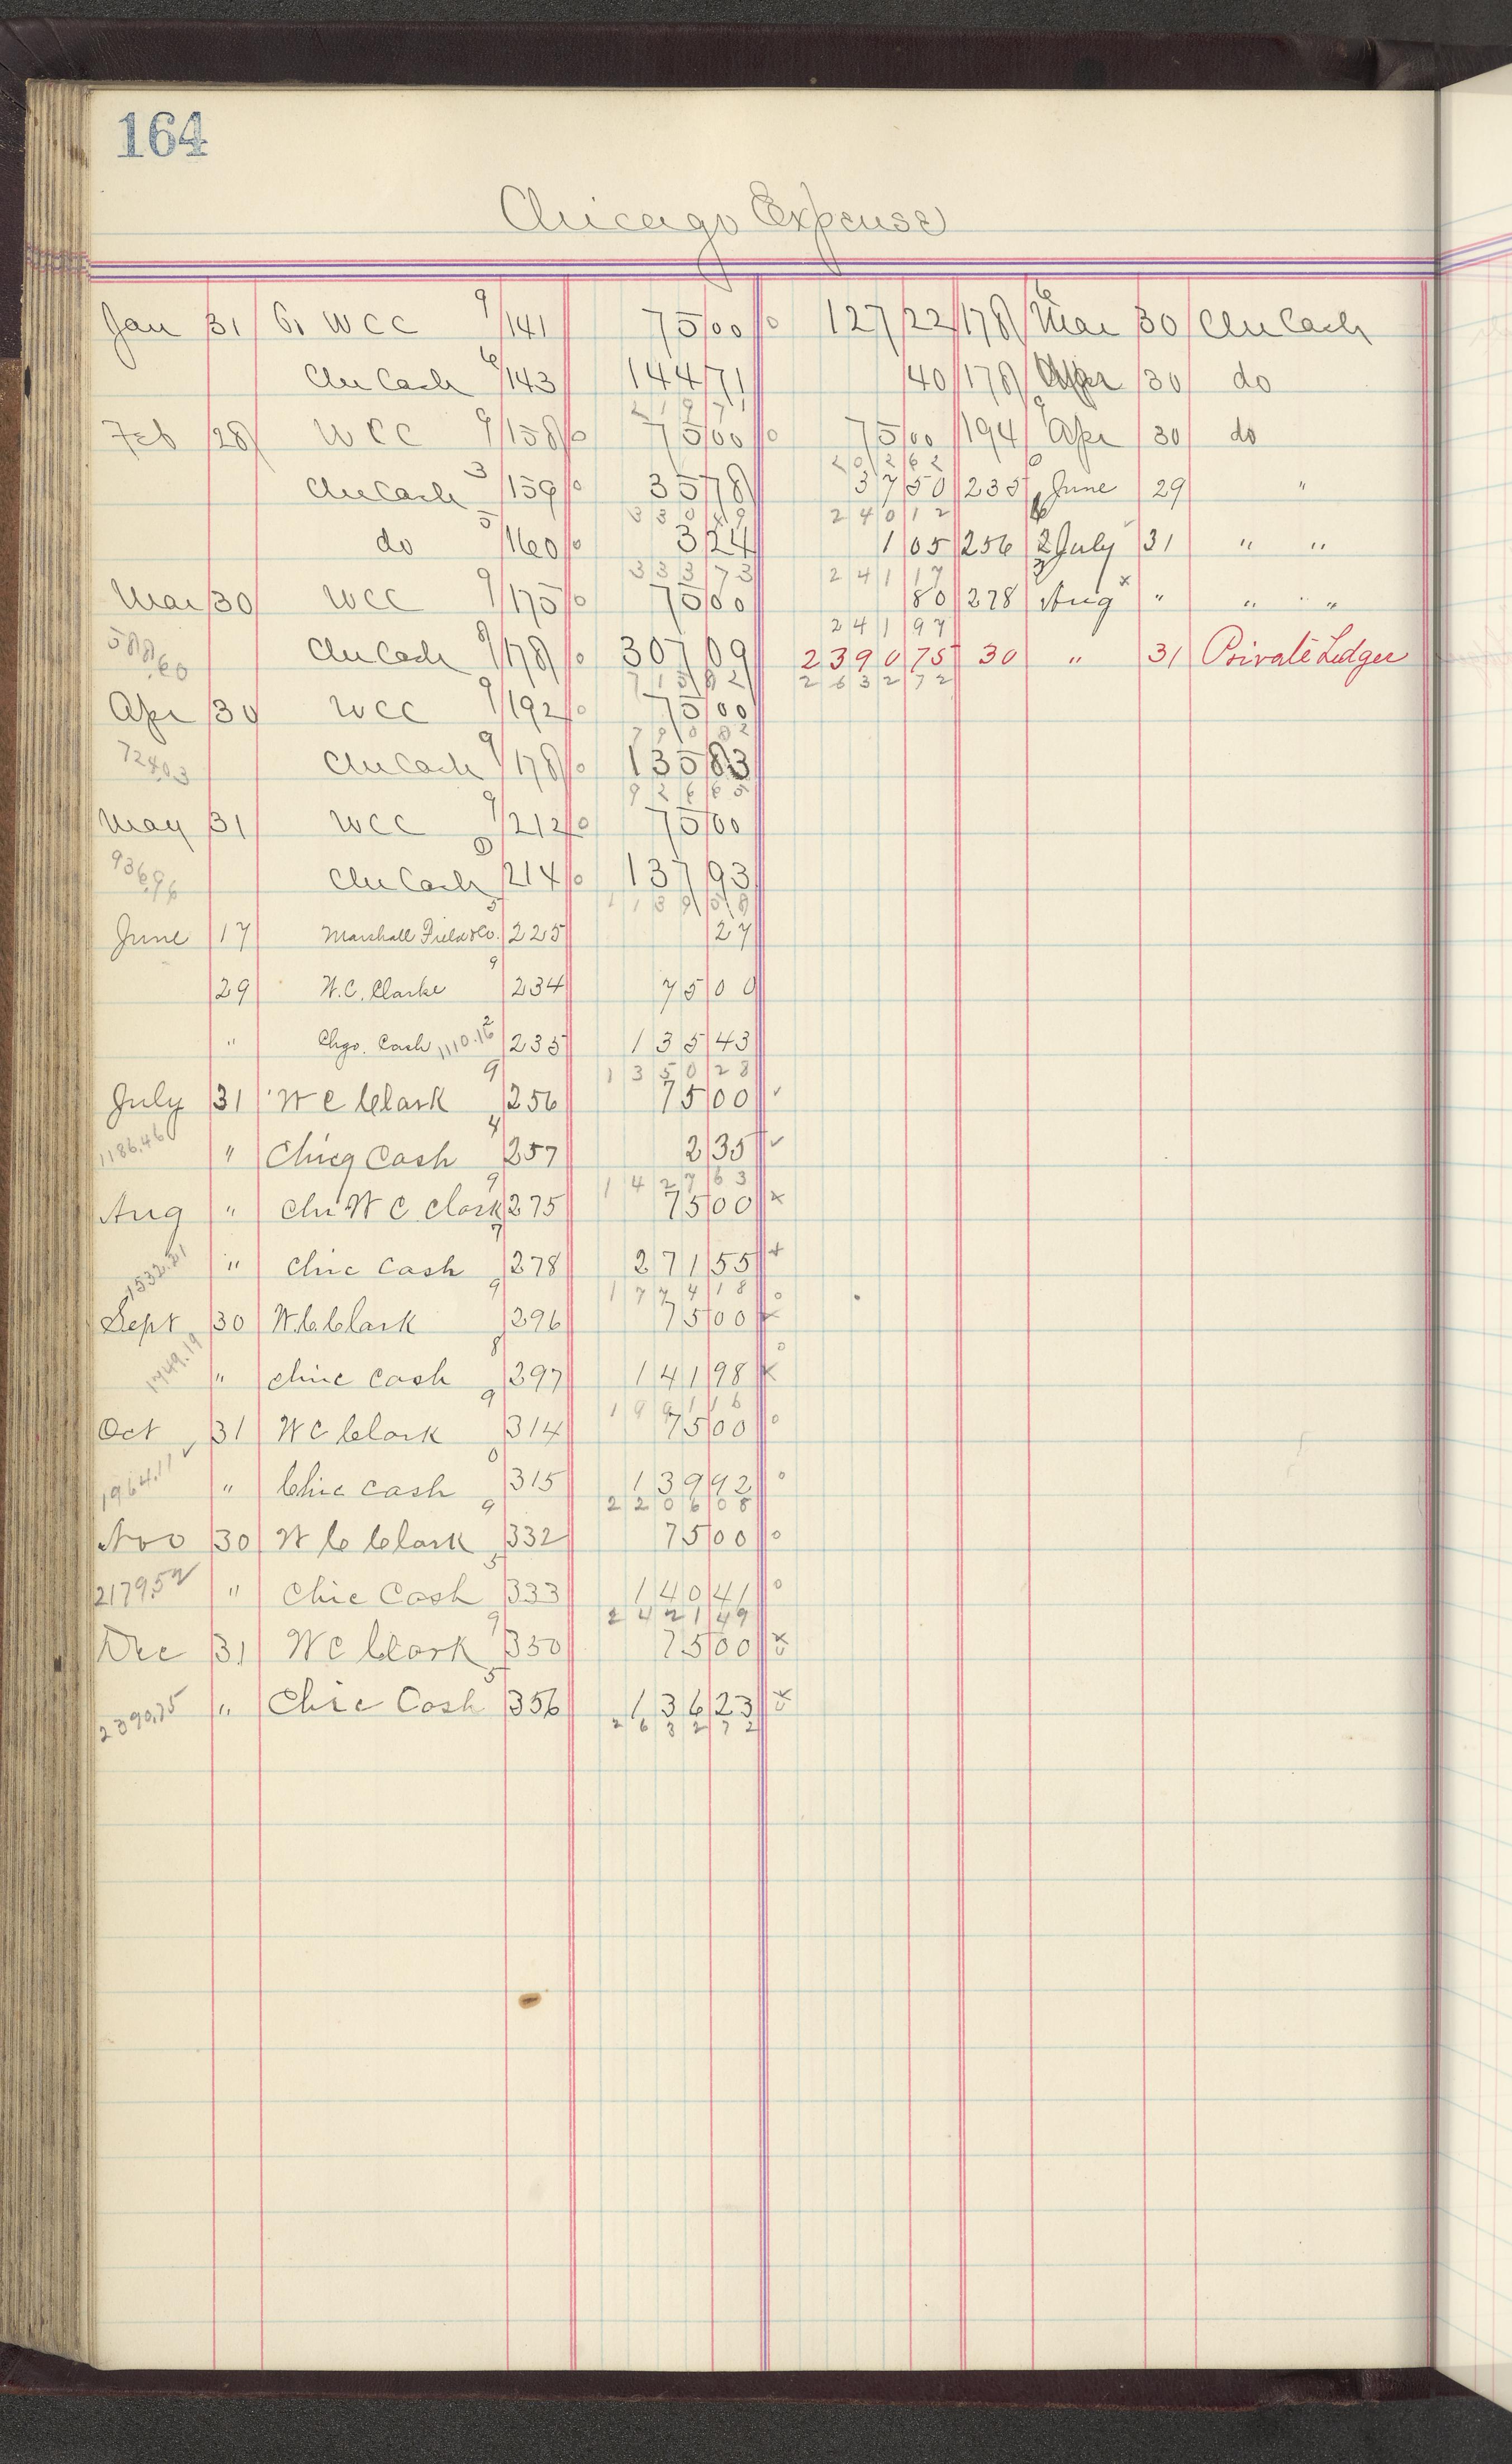 164
Chicago Expense
Jan 31 G. WCC 9/141 75 00 0 127 22 178 6 Mar 30 Chi Cash
Chi Cash 6/143 144 71 40 178 Apr 30 do
219 71
Feb 28 WCC 9/158 0 75 00 0 75 00 194 9 Apr 30 do
202 62
Chi Cash 3/159 0 35 78 37 50 235 0 June 29 "
330 49 240 12
do 5/160 0 3 24 1 05 256 2 July 31 " "
333 73 241 17
Mar 30 WCC 9/175 0 75 00 80 278 Aug x " " "
241 97
588.60 Chi Cash 8/178 0 307 09 2390 75 30 " 31 Private Ledger
715 82 2632 72
Apr 30 WCC 9/192 0 75 00
790 82
724.03 Chi Cash 9/178 0 135 83
926 65
May 31 WCC 9/212 0 75 00
936.96 Chi Cash 0 214 0 137 93
1139 58
June 17 Marshall Field & Co. 5 225 27
29 W.C. Clarke 9 234 75 00
" Chgo. Cash 1110.16 2 235 135 43
1350 28
July 31 W C Clark 9 256 75 00 ✓
1186.46 " Chicg Cash 4 257 2 35 ✓
1427 63
Aug " Chi W C Clark 9 275 75 00 x
1532.21 " Chic Cash 7 278 271 55 +
1774 18
Sept 30 W.C. Clark 9 296 75 00 x 0
1749.19 " Chic Cash 8 297 141 98 x 0
1991 16
Oct 31 W C Clark 9 314 75 00 0
1964.11 ✓ " Chic Cash 0 315 139 92 0
2206 08
Nov 30 W C Clark 9 332 75 00 0
2179.52 " Chic Cash 5 333 140 41 0
2421 49
Dec 31 W C Clark 9 350 75 00 x
2390.75 " Chic Cash 5 356 136 23 x
2632 72